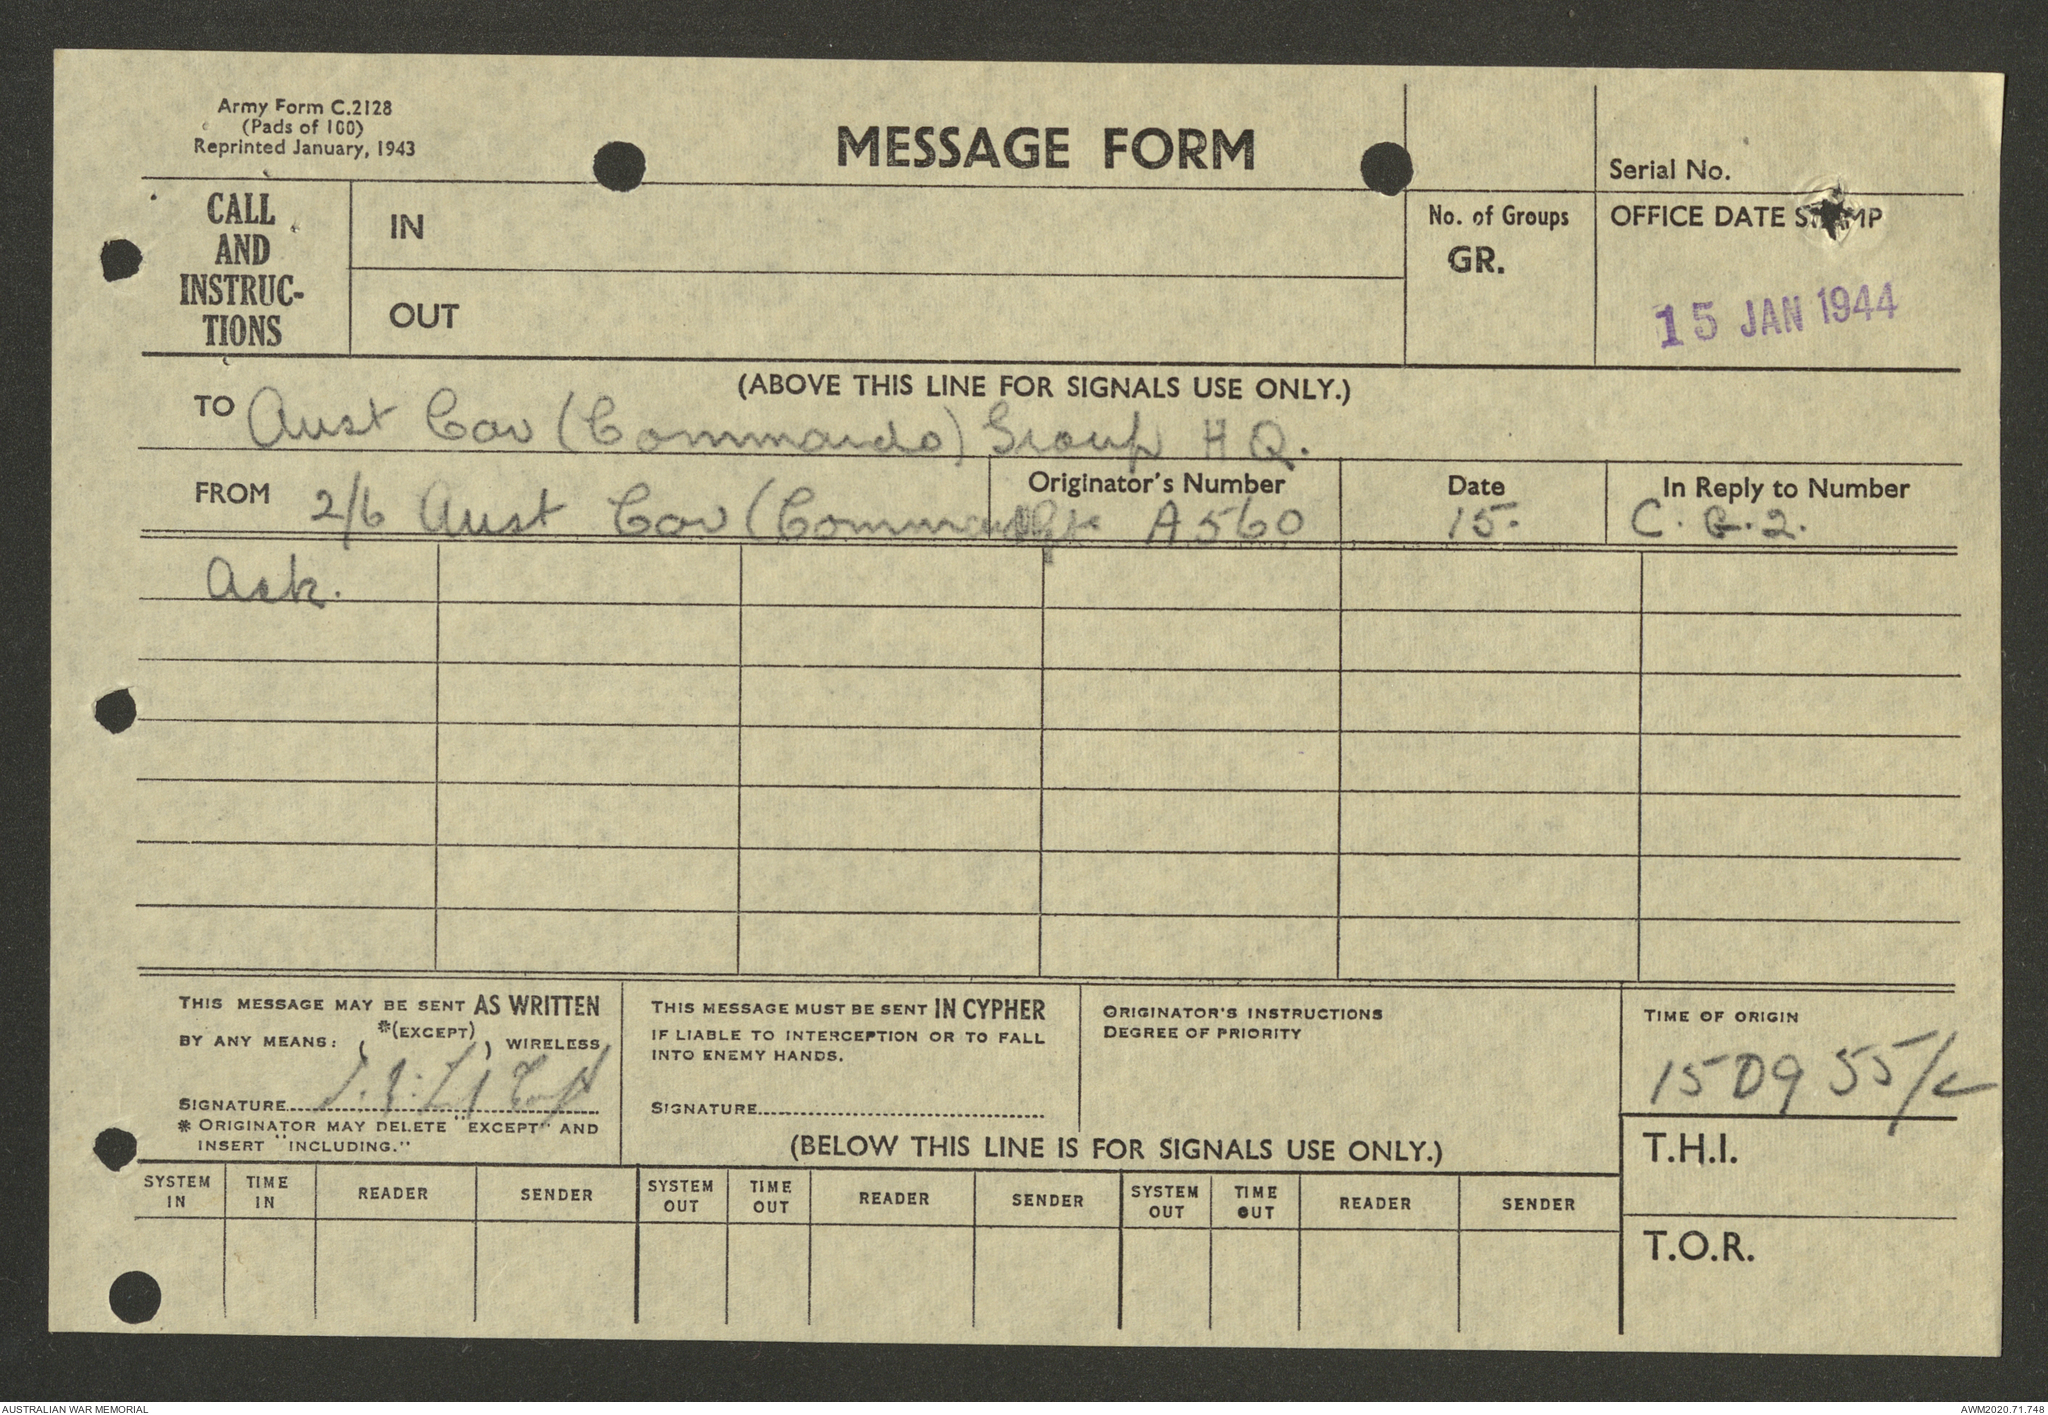 Army Form C.2128
(Pads of 100)
Reprinted January, 1943
MESSAGE FORM
Serial No.
CALL
AND
INSTRUC-
TIONS
IN
OUT
No. of Groups
GR.
OFFICE DATE STAMP
15 JAN 1944
(ABOVE THIS LINE FOR SIGNALS USE ONLY.)
TO Aust Cav (Commando) Group H Q.
FROM 2/6 Aust Cav (Commando
Originator's Number A560
Date 15.
In Reply to Number C. G. 2.
Ack.
THIS MESSAGE MAY BE SENT AS WRITTEN
BY ANY MEANS: *(EXCEPT) WIRELESS
SIGNATURE
* ORIGINATOR MAY DELETE "EXCEPT" AND
INSERT "INCLUDING."
THIS MESSAGE MUST BE SENT IN CYPHER
IF LIABLE TO INTERCEPTION OR TO FALL
INTO ENEMY HANDS.
SIGNATURE
ORIGINATOR'S INSTRUCTIONS
DEGREE OF PRIORITY
TIME OF ORIGIN
(BELOW THIS LINE IS FOR SIGNALS USE ONLY.)
T.H.I.
T.O.R.
SYSTEM IN TIME IN READER SENDER SYSTEM OUT TIME OUT READER SENDER SYSTEM OUT TIME OUT READER SENDER
AUSTRALIAN WAR MEMORIAL
AWM2020.71.748